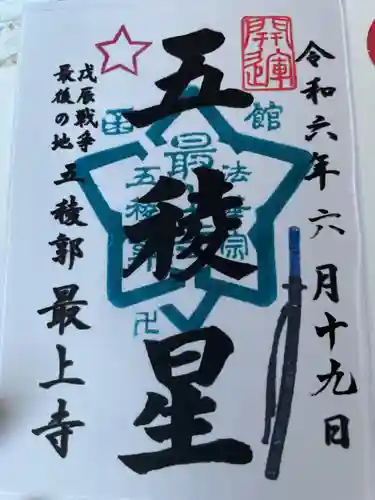 令和六年六月十九日
開運
五稜星
函館
最上寺
法華宗
五稜郭
卍
戊辰戦争
最後の地
五稜郭 最上寺